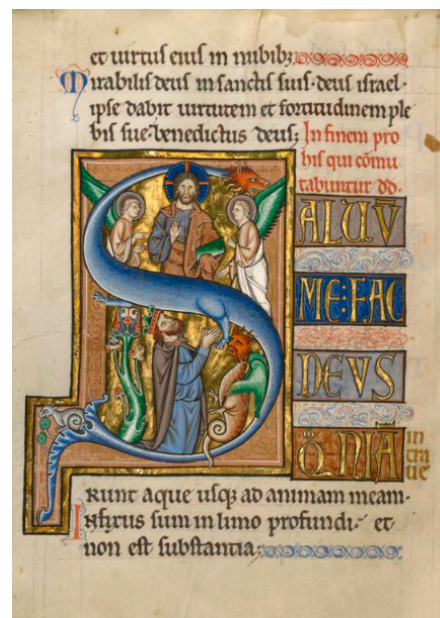 et uirtus eius in nubib;
Mirabilis deus in sanctis suis· deus israel·
ipse dabit uirtutem et fortitudinem ple
bis sue· benedictus deus; In finem pro
his qui cōmu
tabuntur dd·
S ALUV̄
ME·FAC
DEVS
Q̄·NIĀ in
tra
ue
runt aque usq; ad animam meam·
Infixus sum in limo profundi· et
non est substantia;